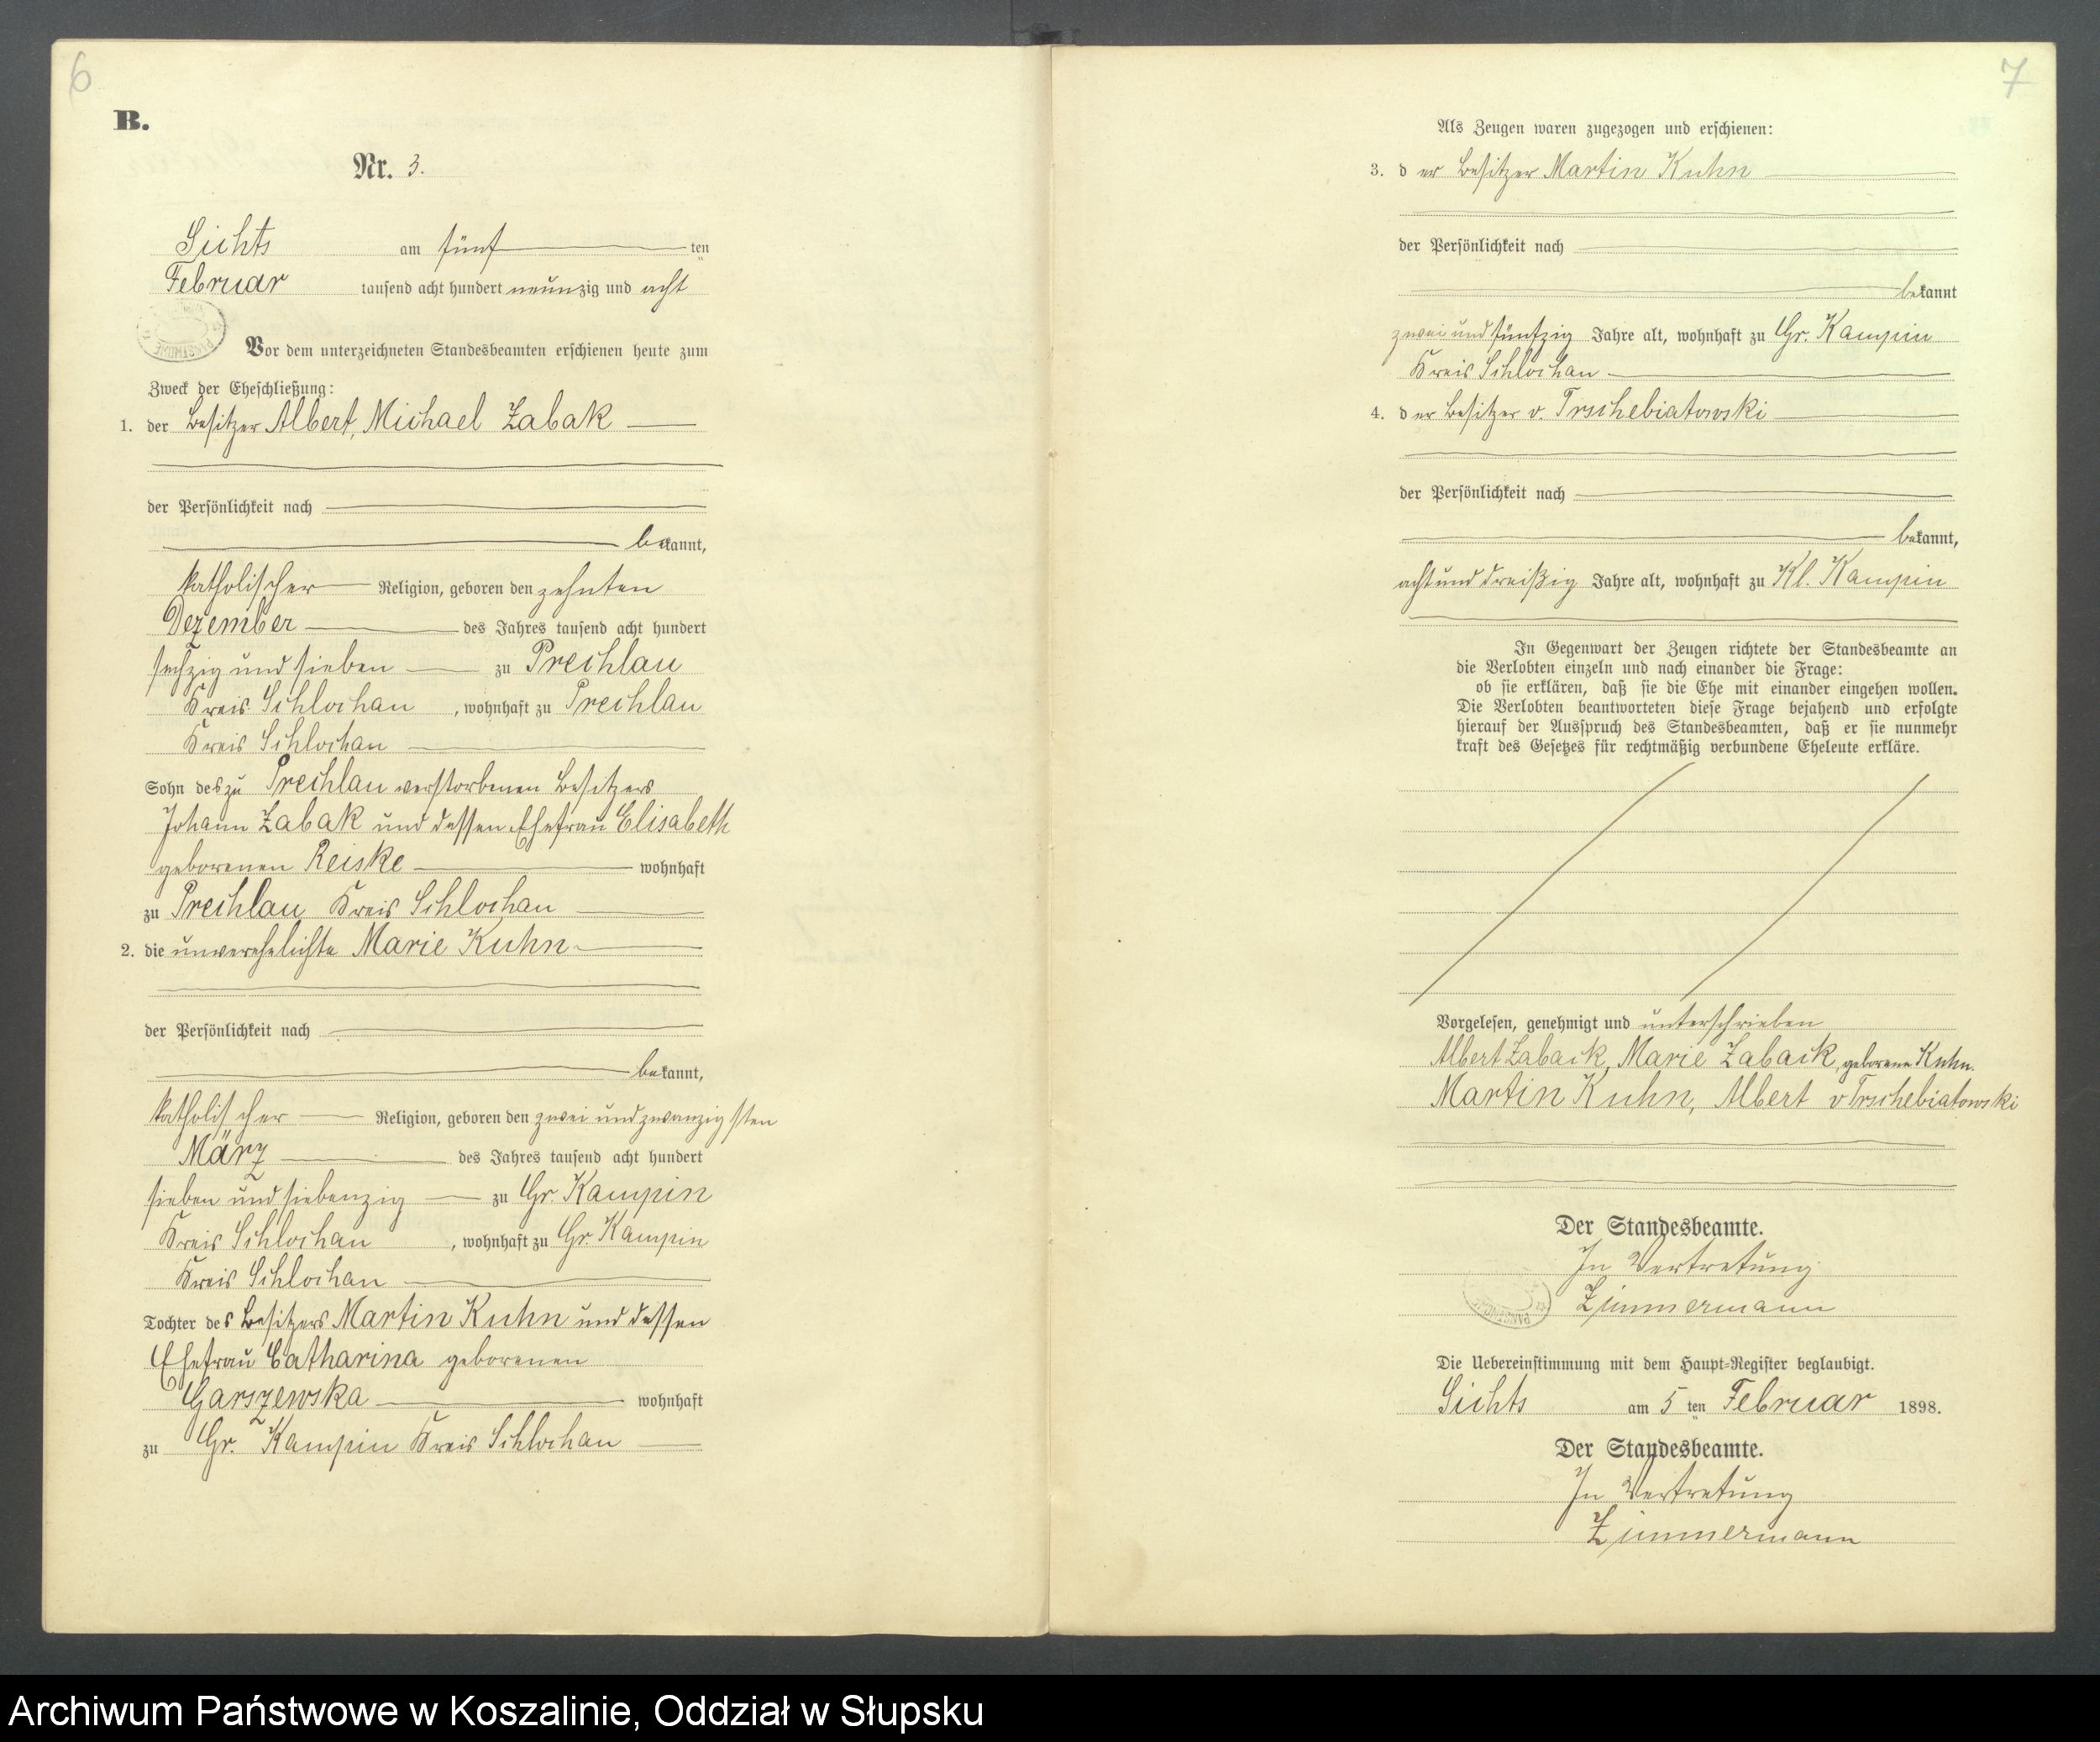 6
B.
Nr. 3.
Sichts am fünf ten
Februar tausend acht hundert neunzig und acht
Vor dem unterzeichneten Standesbeamten erschienen heute zum
Zweck der Eheschließung:
1. der Besitzer Albert, Michael Zabak
der Persönlichkeit nach
bekannt,
katholischer Religion, geboren den zehnten
Dezember des Jahres tausend acht hundert
sechzig und sieben zu Prechlau
Kreis Schlochau, wohnhaft zu Prechlau
Kreis Schlochau
Sohn des zu Prechlau verstorbenen Besitzers
Johann Zabak und dessen Ehefrau Elisabeth
geborenen Reiske wohnhaft
zu Prechlau Kreis Schlochau
2. die unverehelichte Marie Kuhn
der Persönlichkeit nach
bekannt,
katholischer Religion, geboren den zwei und zwanzigsten
März des Jahres tausend acht hundert
sieben und siebenzig zu Gr. Kampin
Kreis Schlochau, wohnhaft zu Gr. Kampin
Kreis Schlochau
Tochter des Besitzers Martin Kuhn und dessen
Ehefrau Catharina geborenen
Garszewska wohnhaft
zu Gr. Kampin Kreis Schlochau
7
Als Zeugen waren zugezogen und erschienen:
3. der Besitzer Martin Kuhn
der Persönlichkeit nach
bekannt
zwei und fünfzig Jahre alt, wohnhaft zu Gr. Kampin
Kreis Schlochau
4. der Besitzer v. Trschebiatowski
der Persönlichkeit nach
bekannt,
acht und dreißig Jahre alt, wohnhaft zu Kl. Kampin
In Gegenwart der Zeugen richtete der Standesbeamte an
die Verlobten einzeln und nach einander die Frage:
ob sie erklären, daß sie die Ehe mit einander eingehen wollen.
Die Verlobten beantworteten diese Frage bejahend und erfolgte
hierauf der Ausspruch des Standesbeamten, daß er sie nunmehr
kraft des Gesetzes für rechtmäßig verbundene Eheleute erkläre.
Vorgelesen, genehmigt und unterschrieben
Albert Zaback, Marie Zaback, geborene Kuhn.
Martin Kuhn, Albert v Trschebiatowski
Der Standesbeamte.
In Vertretung
Zimmermann
Die Uebereinstimmung mit dem Haupt-Register beglaubigt.
Sichts am 5 ten Februar 1898.
Der Standesbeamte.
In Vertretung
Zimmermann
Archiwum Państwowe w Koszalinie, Oddział w Słupsku